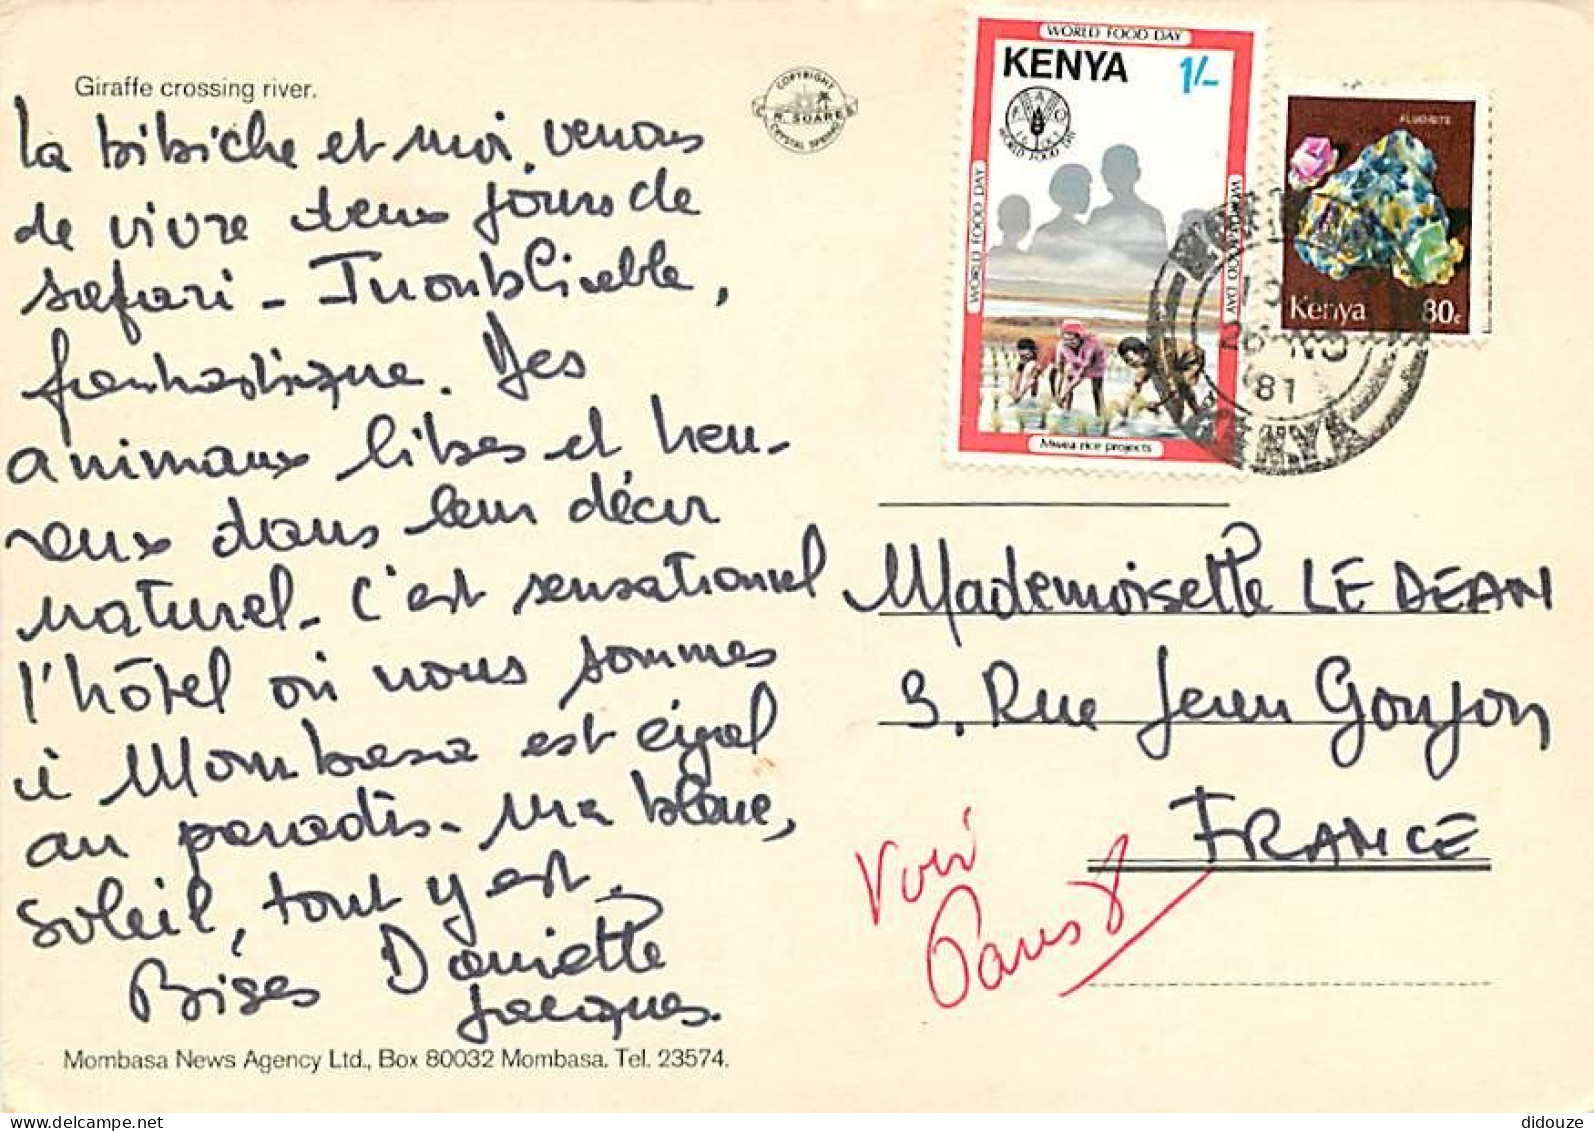 Giraffe crossing river.
La bibiche et moi, venons
de vivre deux jours de
safari - Inoubliable,
fantastique. Des
animaux libres et heu-
reux dans leur décor
naturel - C'est sensationnel
l'hôtel où nous sommes
à Mombasa est égal
au paradis. Mer bleue,
soleil, tout y est.
Bises Danielle
Jacques.
Mombasa News Agency Ltd., Box 80032 Mombasa. Tel. 23574.
COPYRIGHT
R. SOARE
CRYSTAL SPRING
WORLD FOOD DAY
KENYA 1/-
FAO
WORLD FOOD DAY
WORLD FOOD DAY
WORLD FOOD DAY
Mwea rice projects
FLUORITE
Kenya 80c
NO
81
KENYA
Mademoiselle LE DEAN
3, Rue Jean Goujon
FRANCE
Voir
Paris 8
didouze